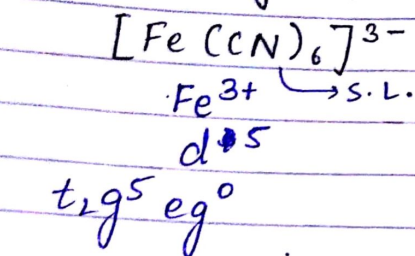 [Fe(CN)₆]³⁻
Fe³⁺ → S.L.
d⁵
t₂g⁵ eg⁰